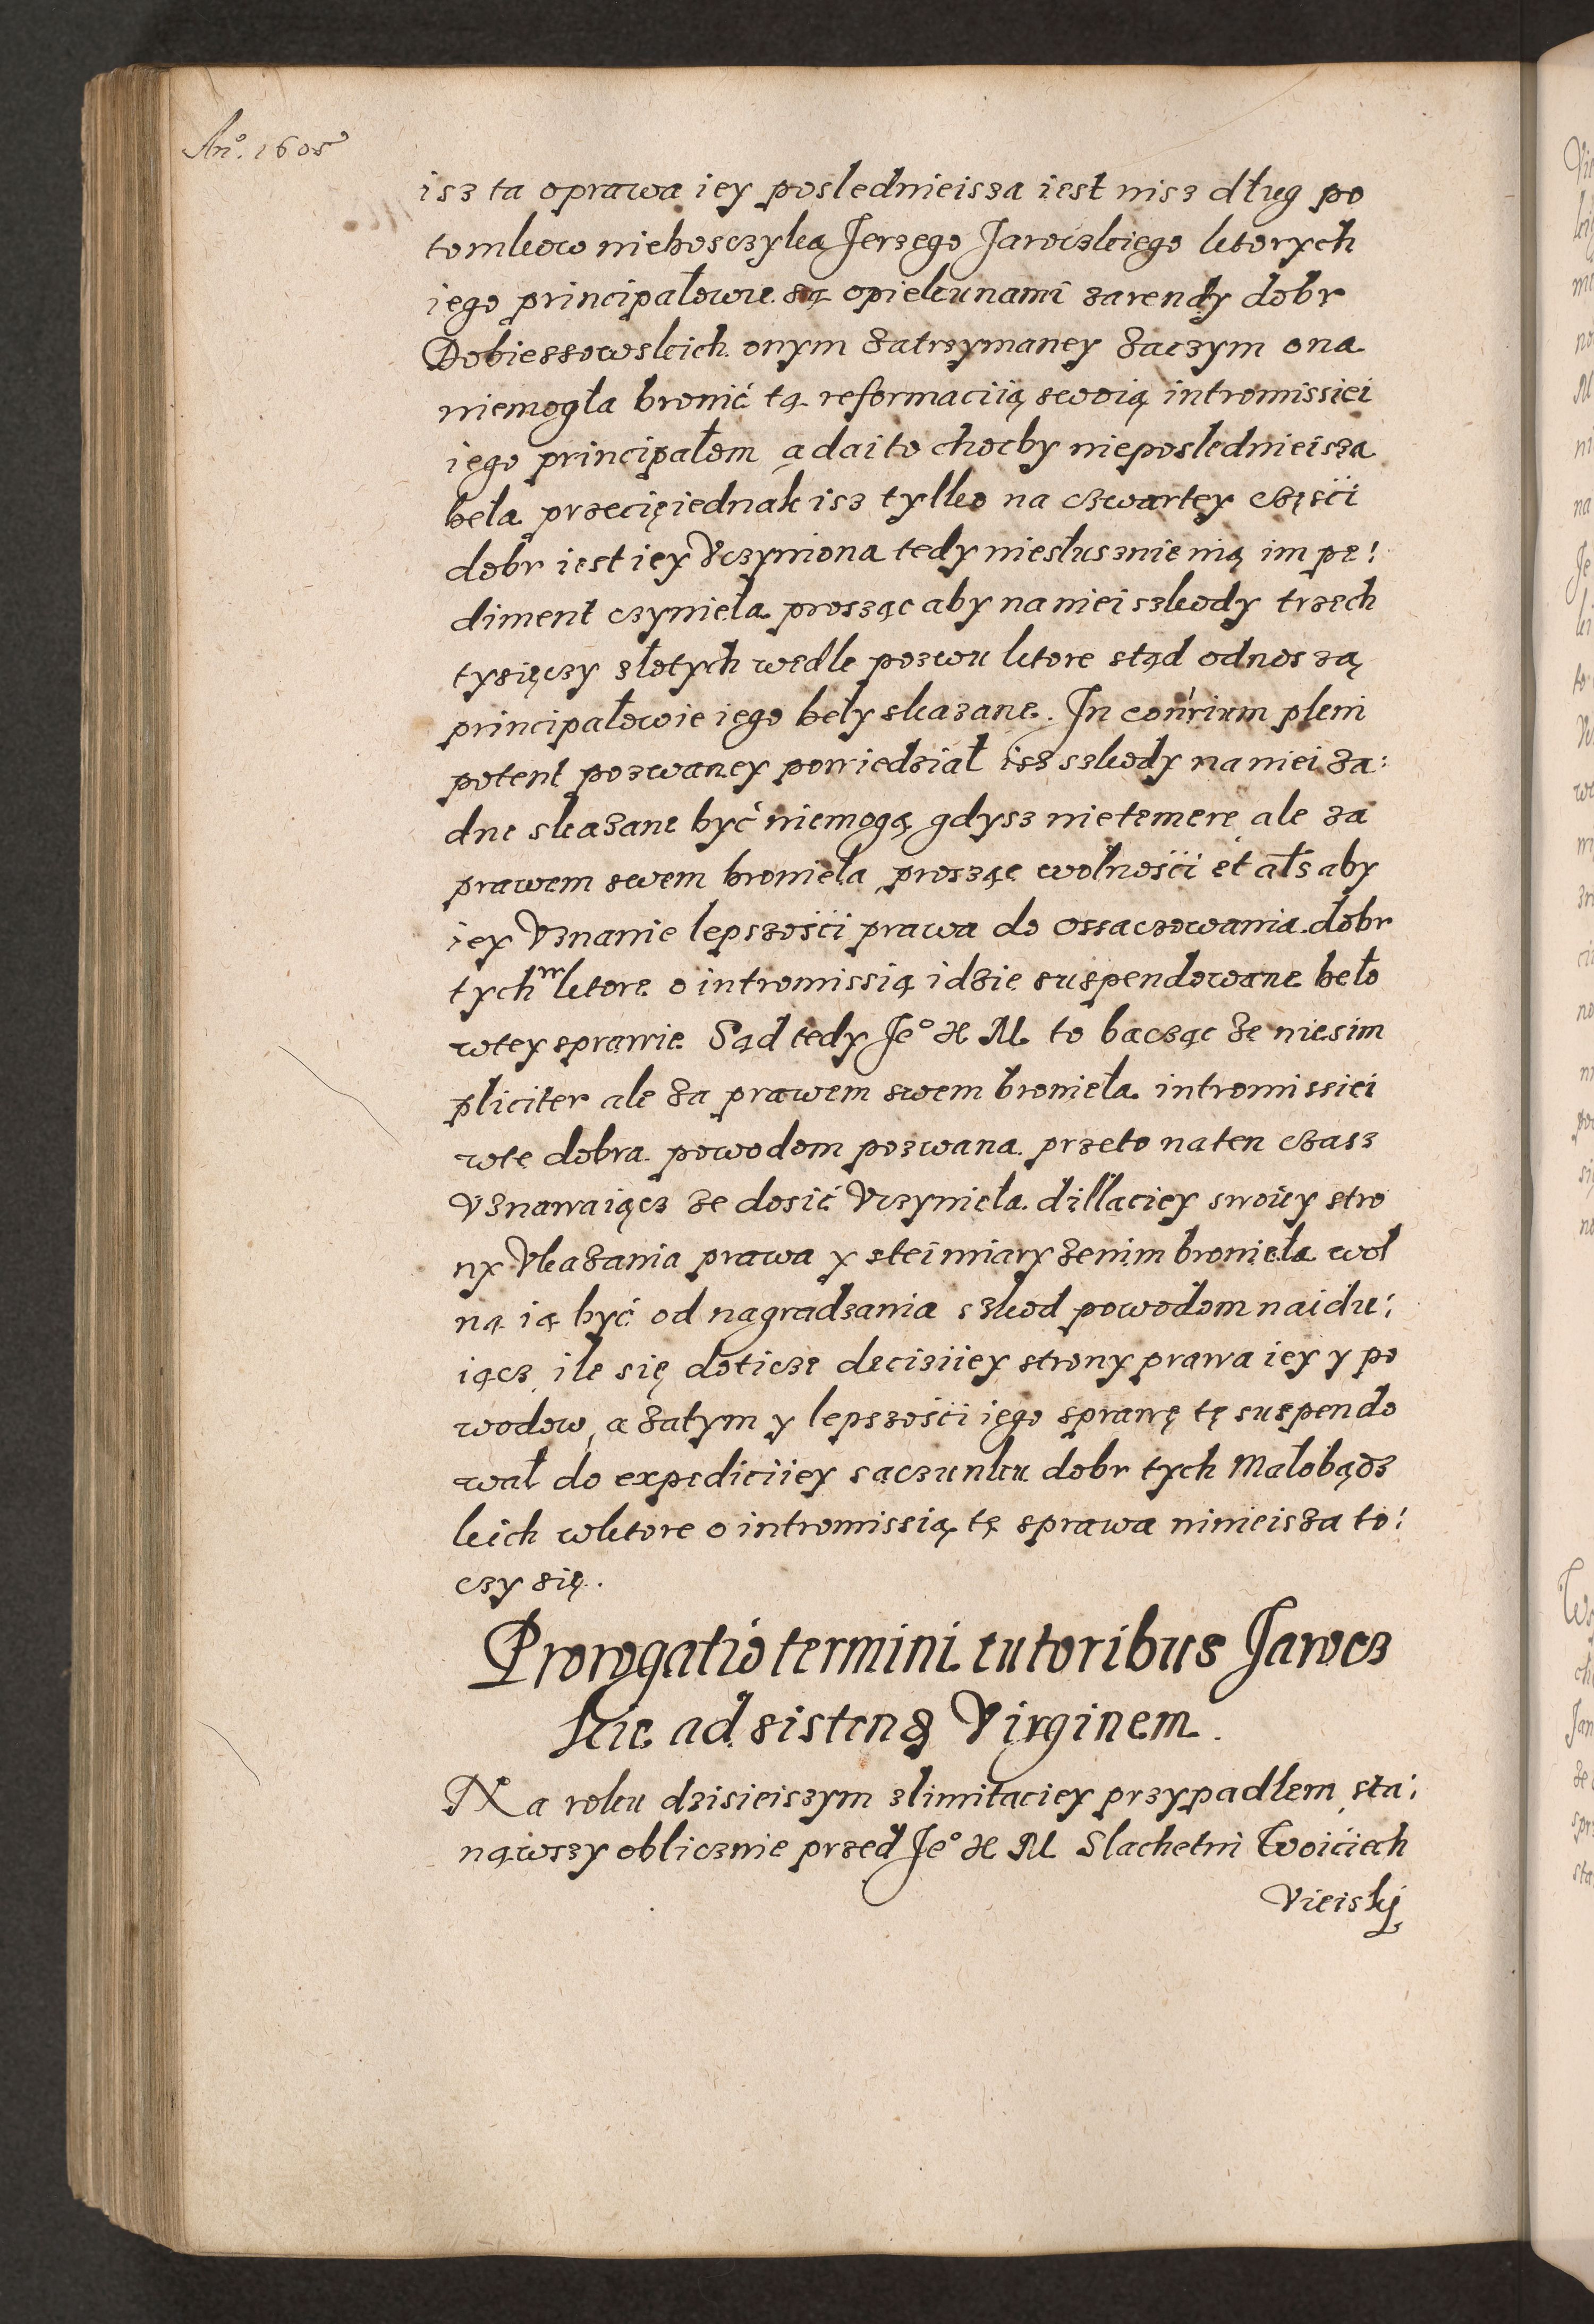 An.º 1605
isz ta oprawa iey poslednieisza iest nisz dług po
tomkow nieboszczyka Jerzego Jaroczkiego ktorych
iego principałowie są opiekunami zarendy dobr
Dobiessowskich onym zatrzymaney zaczym ona
niemogła bronić tą reformaciią swoią intromissiei
iego principałom ą dai to chocby nieposledniejsza
beła przecię iednak isz tylko na czwartey częsci
dobr iest iey Vczyniona tedy niesłusznie nią impe:
diment czynieła prosząc aby na niei szkody trzech
tysięczy złotych wedle pozwu ktore stąd odnoszą
principałowie iego beły skazane. In conrium pleni
potent pozwaney powiedział isz szkody na niei za:
dne skazane być niemogą gdysz nietemere ale za
prawem swem bronieła prosząc wolności et als aby
iey Vznanie lepszości prawa do ossaczowania dobr
tych w ktore o intromissią idzie suspendowane beło
wtey sprawie Sąd tedy Jeº K M to bacząc ze niesim
pliciter ale za prawem swem bronieła intromissiei
wte dobra powodom pozwana przeto naten czasz
Vznawaiącz ze dosić Vczynieła dillaciey swoiey stro
ny Vkazania prawa y stei miary ze nim bronieła wol
ną ią być od nagradzania szkod powodom naidu:
iącz ile się doticze deciziiey strony prawa iey y po
wodow, a zatym y lepszości iego sprawę tę suspendo
wał do expediciiey saczunku dobr tych Małobądz
kich wktore o intromissią tę sprawa ninieisza to:
czy się.
Prorogatio termini tutoribus Jarocz
kie ad sistend Virginem.
Na roku dzisieiszym zlimitaciey przypadłem sta:
nąwszy oblicznie przed Jeº K M Slachetni Woiciech
Vieiskj